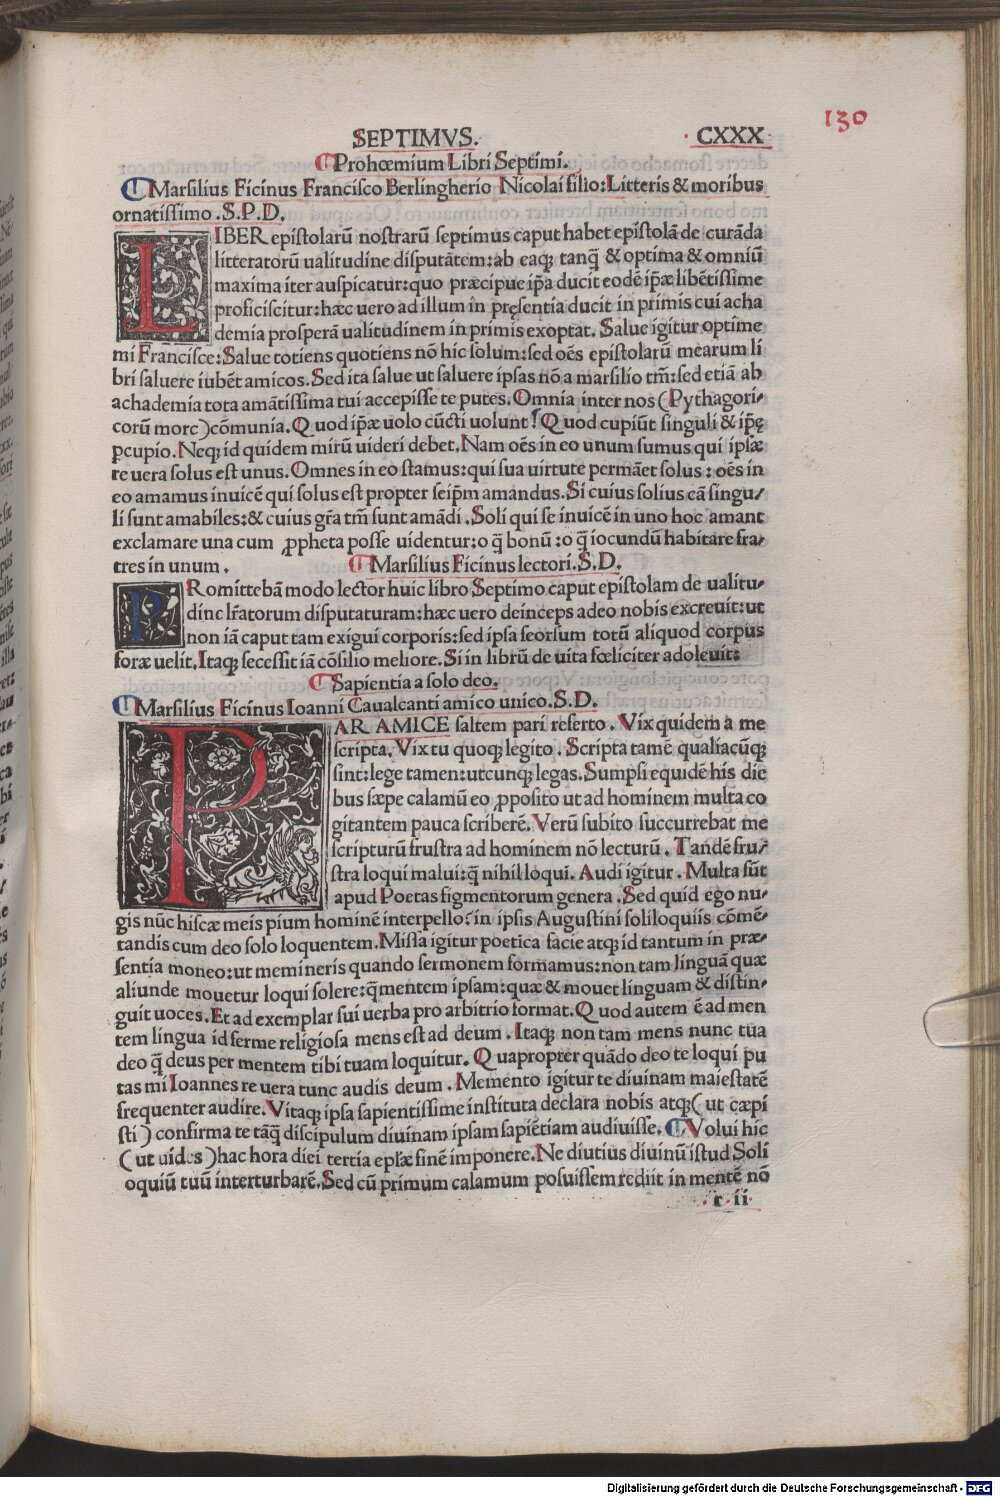 130
SEPTIMVS. CXXX
Prohœmium Libri Septimi.
Marsilius Ficinus Francisco Berlingherio Nicolai filio: Litteris & moribus
ornatissimo .S.P.D.
LIBER epistolarū nostrarū septimus caput habet epistolā de curāda
litteratorū ualitudine disputātem: ab eaqȝ tanq̄ & optima & omniū
maxima iter auspicatur: quo præcipue ip̄a ducit eodē ip̄æ libētissime
proficiscitur: hæc uero ad illum in pręsentia ducit in primis cui acha
demia prosperā ualitudinem in primis exoptat. Salue igitur optime
mi Francisce: Salue totiens quotiens nō hic solum: sed oēs epistolarū mearum li
bri saluere iubēt amicos. Sed ita salue ut saluere ipsas nō a marsilio tm̄: sed etiā ab
achademia tota amātissima tui accepisse te putes. Omnia inter nos (Pythagori-
corū more) cōmunia. Quod ip̄æ uolo cūcti uolunt? Quod cupiūt singuli & ip̄ę
ꝑcupio. Neqȝ id quidem mirū uideri debet. Nam oēs in eo unum sumus qui ipsæ
re uera solus est unus. Omnes in eo stamus: qui sua uirtute permāet solus: oēs in
eo amamus inuicē qui solus est propter seip̄m amandus. Si cuius solius cā singu-
li sunt amabiles: & cuius gr̄a tm̄ sunt amādi. Soli qui se inuicē in uno hoc amant
exclamare una cum ꝓpheta posse uidentur: o q̄ bonū: o q̄ iocundū habitare fra-
tres in unum.
Marsilius Ficinus lectori. S.D.
PRomittebā modo lector huic libro Septimo caput epistolam de ualitu-
dine lr̄atorum disputaturam: hæc uero deinceps adeo nobis excreuit: ut
non iā caput tam exigui corporis: sed ipsa seorsum totū aliquod corpus
foræ uelit. Itaqȝ secessit iā cōsilio meliore. Si in librū de uita fœliciter adoleuit:
Sapientia a solo deo.
Marsilius Ficinus Ioanni Caualcanti amico unico. S.D.
PAR AMICE saltem pari referto. Vix quidem a me
scripta. Vix tu quoqȝ legito. Scripta tamē qualiacūqȝ
sint: lege tamen: utcunqȝ legas. Sumpsi equidē his die
bus sæpe calamū eo ꝓposito ut ad hominem multa co
gitantem pauca scriberē. Verū subito succurrebat me
scripturū frustra ad hominem nō lecturū. Tandē fru-
stra loqui malui: q̄ nihil loqui. Audi igitur. Multa sūt
apud Poetas figmentorum genera. Sed quid ego nu-
gis nūc hiscæ meis pium hominē interpello? in ipsis Augustini soliloquiis cōmē-
tandis cum deo solo loquentem. Missa igitur poetica facie atqȝ id tantum in præ-
sentia moneo: ut memineris quando sermonem formamus: non tam linguā quæ
aliunde mouetur loqui solere: q̄ mentem ipsam: quæ & mouet linguam & distin-
guit uoces. Et ad exemplar sui uerba pro arbitrio format. Quod autem ē ad men
tem lingua id ferme religiosa mens est ad deum. Itaqȝ non tam mens nunc tua
deo q̄ deus per mentem tibi tuam loquitur. Quapropter quādo deo te loqui pu
tas mi Ioannes re uera tunc audis deum. Memento igitur te diuinam maiestatē
frequenter audire. Vitaqȝ ipsa sapientissime instituta declara nobis atqȝ (ut cæpi
sti) confirma te tāq̄ discipulum diuinam ipsam sapiētiam audiuisse. Volui hic
(ut uides) hac hora diei tertia epl̄æ finē imponere. Ne diutius diuinū istud Soli
oquiū tuū interturbarē. Sed cū primum calamum posuissem rediit in mentē nō
r ii
Digitalisierung gefördert durch die Deutsche Forschungsgemeinschaft - DFG